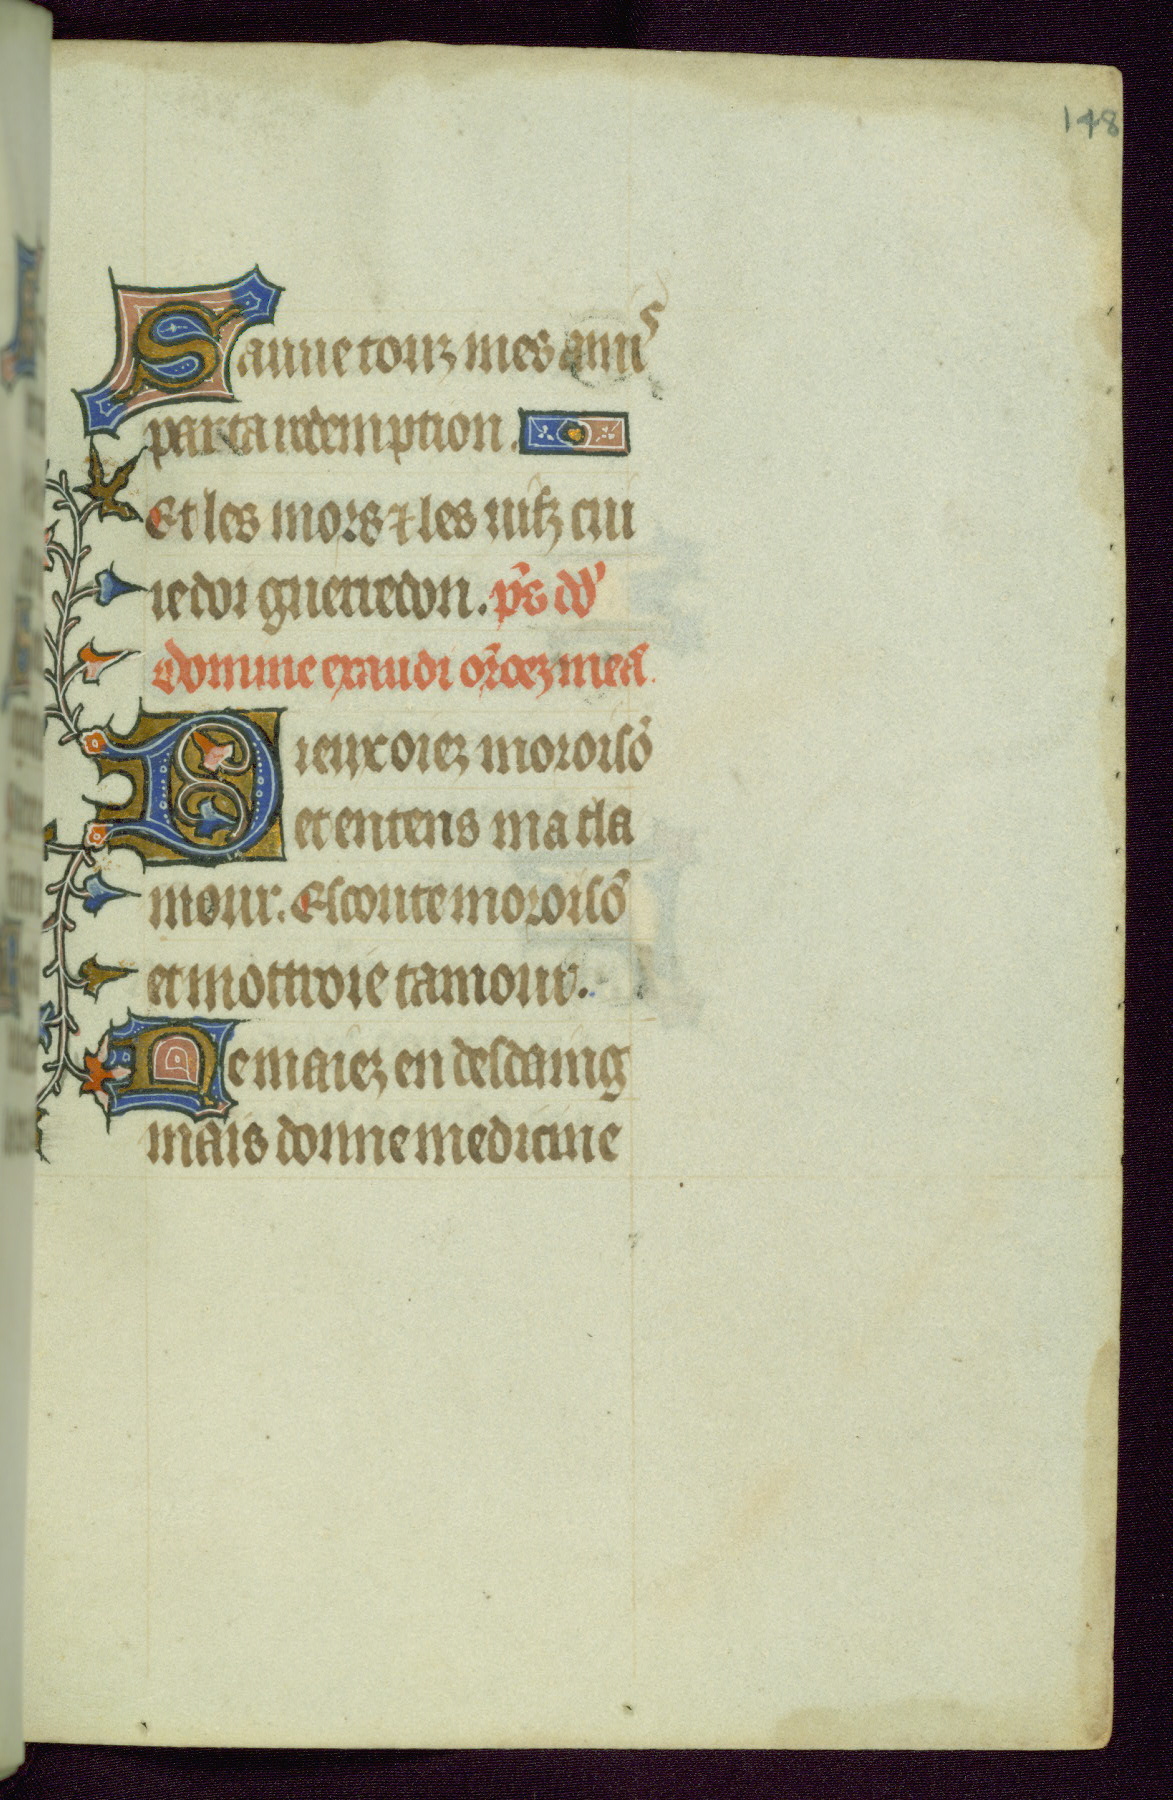 148
Sauue touz mes amis
par ta redemption.
Et les mors & les uifz cui
ie doi guerredon. ps̄ dd'
Domine exaudi or̄oez meā.
Dieux oiez mororisō
et entens ma cla
mour. Escoute mororisō
et mottroie tamour.
Ne maiez en desdaing
mais donne medicine